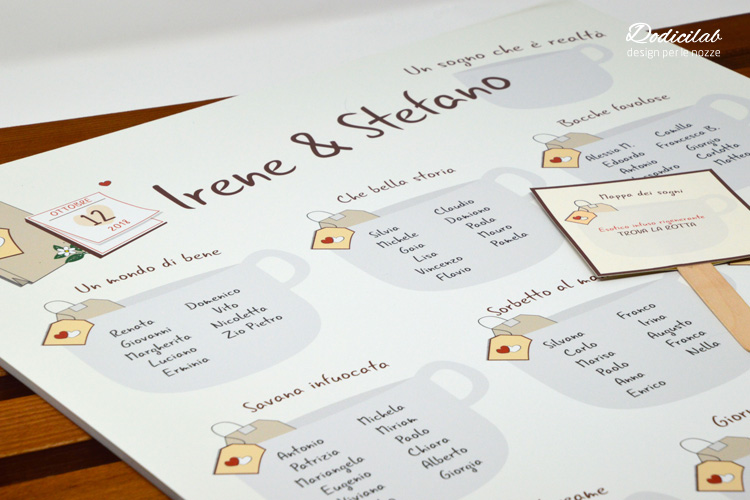 Dodicilab
design per le nozze
Un sogno che è realtà
Irene & Stefano
OTTOBRE
12
2018
Bacche favolose
Alessio M.
Edoardo
Antonio
Camilla
Francesca B.
Giorgia
Carlotta
Matteo
Che bella storia
Silvia
Michele
Gaia
Lisa
Vincenzo
Flavio
Claudio
Damiano
Paola
Mauro
Pamela
Mappa dei sogni
Esotico infuso rigenerante
TROVA LA ROTTA
Un mondo di bene
Renata
Giovanni
Margherita
Luciano
Erminia
Domenico
Vito
Nicoletta
Zio Pietro
Sorbetto al
Silvana
Carlo
Marisa
Paolo
Anna
Enrico
Franco
Irina
Augusto
Franca
Nella
Savana infuocata
Antonio
Patrizia
Mariangela
Eugenio
Viviana
Michela
Miriam
Paolo
Chiara
Alberto
Giorgia